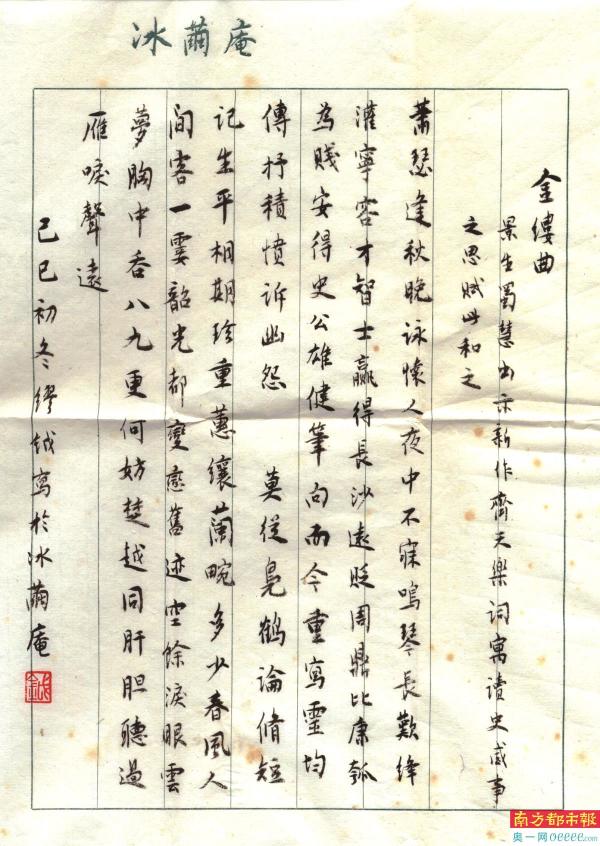 冰繭庵
金縷曲
景生蜀慧出示新作齊天樂詞寓讀史感事
之思賦此和之
蕭瑟逢秋晚詠懷人夜中不寐鳴琴長歎絳
灌寧容才智士贏得長沙遠貶周鼎比康瓠
為賤安得史公雄健筆向而今重寫靈均
傳抒積憤訴幽怨 莫從鳧鶴論脩短
記生平相期珍重蕙纕蘭畹多少春風人
間客一霎韶光都變舊迹空餘淚眼雲
夢胸中吞八九更何妨楚越同肝膽聽過
雁唳聲遠
己巳初冬繆鉞寫於冰繭庵
南方都市報
奥一网oeeee.com